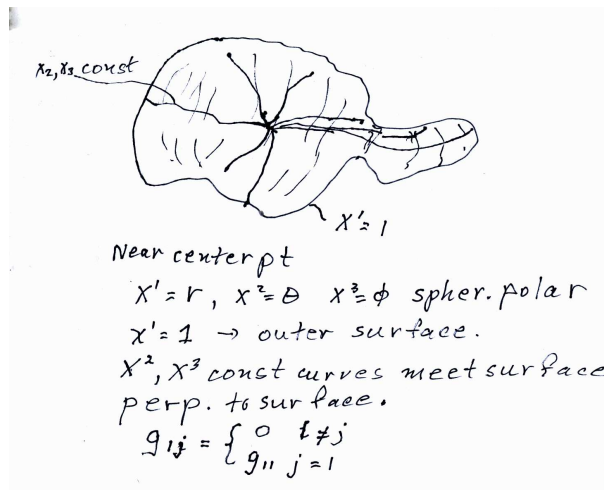 x2, x3 const
x'= 1
Near center pt
x' = r, x² = θ x³ = φ spher. polar
x' = 1 → outer surface.
x², x³ const curves meet surface
perp. to surface.
g₁j = { 0 1 ≠ j
g₁₁ j = 1